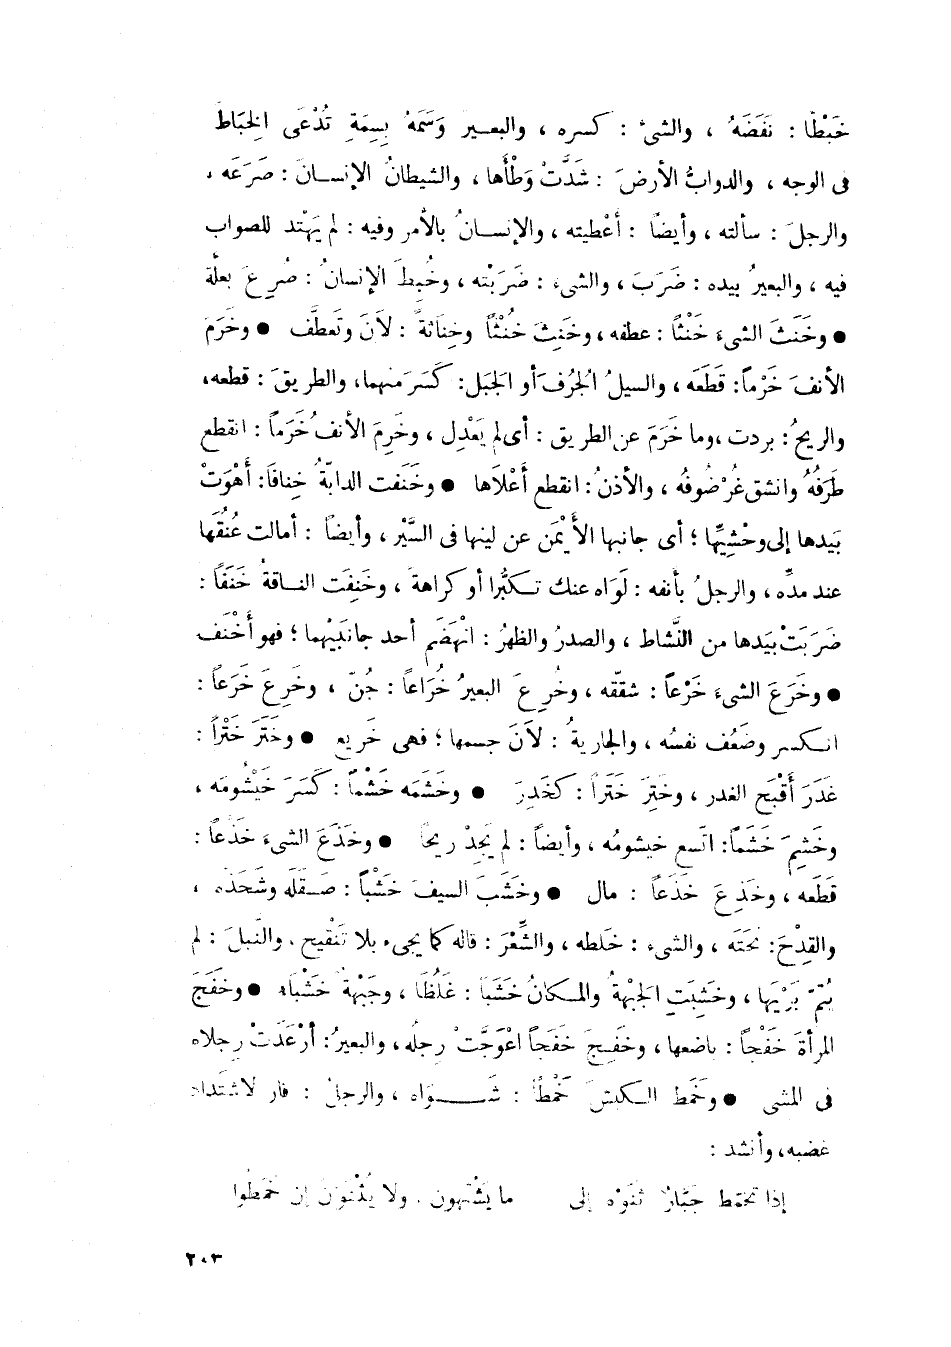 خَبْطًا : نَفَضَهُ ، والشىْ : كسره ، والبعــير وَسَمَهُ بِسِمَةِ تُدْعَى الِخبَاطَ
فى الوجه ، والدوابُّ الأرضَ : شَدَّتْ وَطْأَها ، والشيطانُ الإنســانَ : صَرَعَه ،
والرجلَ : سألته ، وأيضًا : أعْطيته ، والإنســانُ بالأمر وفيه : لم يَهْتد للصواب
فيه ، والبعيرُ بيده : ضَرَبَ ، والشىء : ضَرَبْته ، وخُبِطَ الإنسانُ : صُرِعَ بعلَّة
● وخَنَثَ الشىءَ خَنْثًا : عطفه ، وخَنِثَ خُنْثًا وخِنَاثةً : لاَنَ وتَعطَّف ● وخَرَمَ
الأنفَ خَرْماً : قَطَعَه ، والسيلُ الجُرُفَ أو الجَبَل : كَسَرَ منهما، والطريقَ : قطعه،
والريحُ : بردت ، وما خَرَمَ عن الطريق : أى لم يَعْدِل ، وخَرِمَ الأنفُ خَرَماً : انقطع
طَرَفُهُ وانشق غُرْضُوفُه ، والأذنُ : انقطع أَعْلاَها ● وخَنَفت الدابَّةُ خِنافًا : أَهْوَتْ
بَيدها إلى وحْشِيِّها ؛ أى جانبها الأَيْمَن عن لينها فى السَّيْر ، وأيضاً : أمالت عُنُقَها
عند مدِّه ، والرجلُ بأنفه : لَوَاه عنك تــكبُّرا أو كراهة ، وخَنِفَت النـاقةُ خَنَفًا :
ضَرَبَتْ بَيدها من النَّشاط ، والصدرُ والظهرُ : انْهَضَم أحد جانَبَيْهما ؛ فهو أَخْنَف
● وخَرَعَ الشىءَ خَرْعاً : شققه ، وخُرِعَ البعيرُ خُرَاعاً : جُنّ ، وخَرِعَ خَرَعاً :
انــكسر وضَعُف نفسُه ، والجاريةُ : لاَنَ جسمها ؛ فهى خَرِيع ● وخَتَرَ خَتْراً :
غَدَرَ أَقْبَح الغدر ، وخَتِرَ خَتَراً : كَخَدِرَ ● وخَشَمَه خَشْماً : كَسَرَ خَيْشُومَه ،
وخَشِمَ خَشَماً : اتَّسع خيشومُه ، وأيضاً : لم يَجِدْ ريحًا ● وخَذَعَ الشىءَ خَذْعاً :
قَطَعه ، وخَذِعَ خَذَعاً : مال ● وخَشَبَ السيفَ خَشْباً : صَـقَلَه وشَحَذَه ،
والقِدْحَ : نَحَتَه ، والشىءَ : خَلطه ، والشِّعْرَ : قاله كما يجىء بلا تَنْقيح ، والنَّبلَ : لم
يُتمّ بَرْيَها ، وخَشِبَتِ الجَبْهةُ والمــكانُ خَشَبًا : غَلُظَا ، وجَبْهةٌ خَشْباء ● وخَفَجَ
المرأةَ خَفْجاً : باضعها ، وخَفِـجَ خَفَجاً اعْوَجَّتْ رِجلُه ، والبعيرُ : أرْعَدَتْ رِجلاه
فى المشى ● وخَمَط الــكبشَ خَمْطاً : شَـــــوَاه ، والرجلُ : فار لاشتداد
غضبه، وأنشد :
إذا تخمّط جَبَّارٌ ثَنَوْه إلى ما يَشْتهون ، ولا يُثْنَوْنَ إن خَمَطُوا
٢٠٣